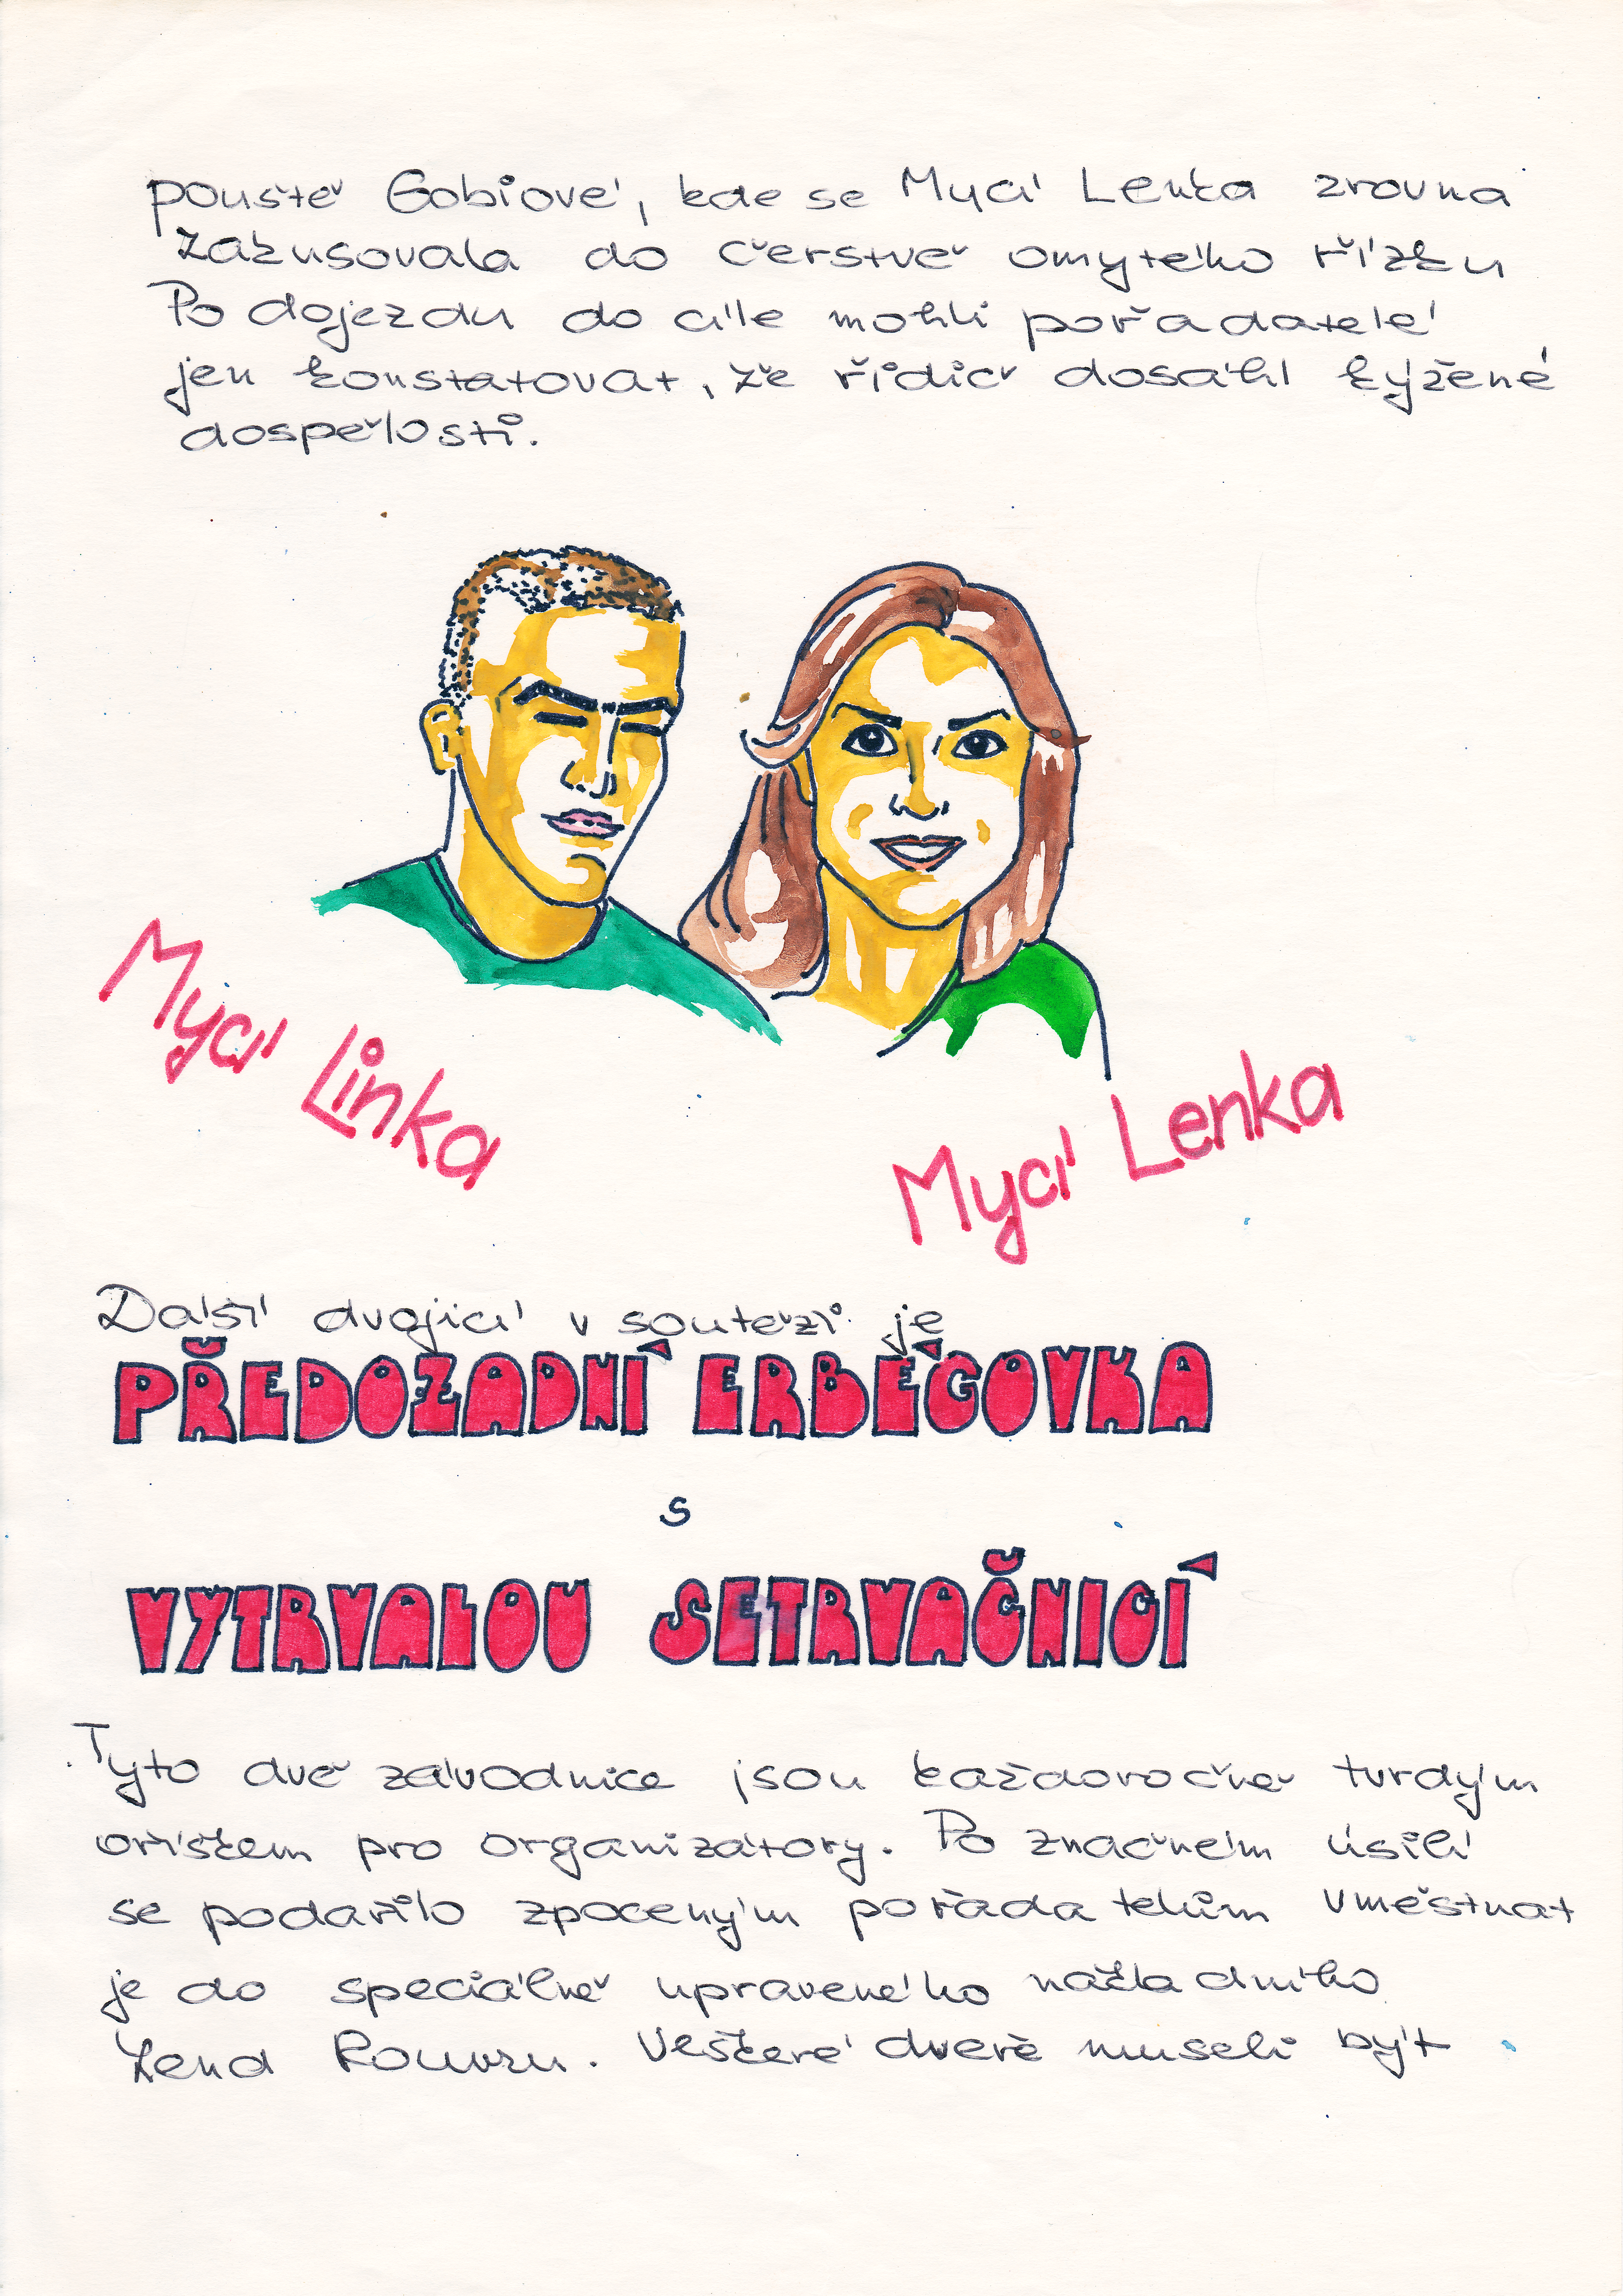 poušťě Gobiové, kde se Mycí Lenka zrovna
zakusovala do čerstvě omytého řízku
Po dojezdu do cíle mohli pořadatelé
jen konstatovat, že řidič dosáhl kýžené
dospělosti.
Mycí Linka
Mycí Lenka
Další dvojicí v soutěži je
PŘEDOZADNÍ ERBÉGOVKA
s
VYTRVALOU SETRVAČNICÍ
Tyto dvě závodnice jsou každoročně tvrdým
oříškem pro organizátory. Po značném úsilí
se podařilo zpoceným pořadatelům vměstnat
je do speciálně upraveného nákladního
Lend Rouvru. Veškeré dveře museli být